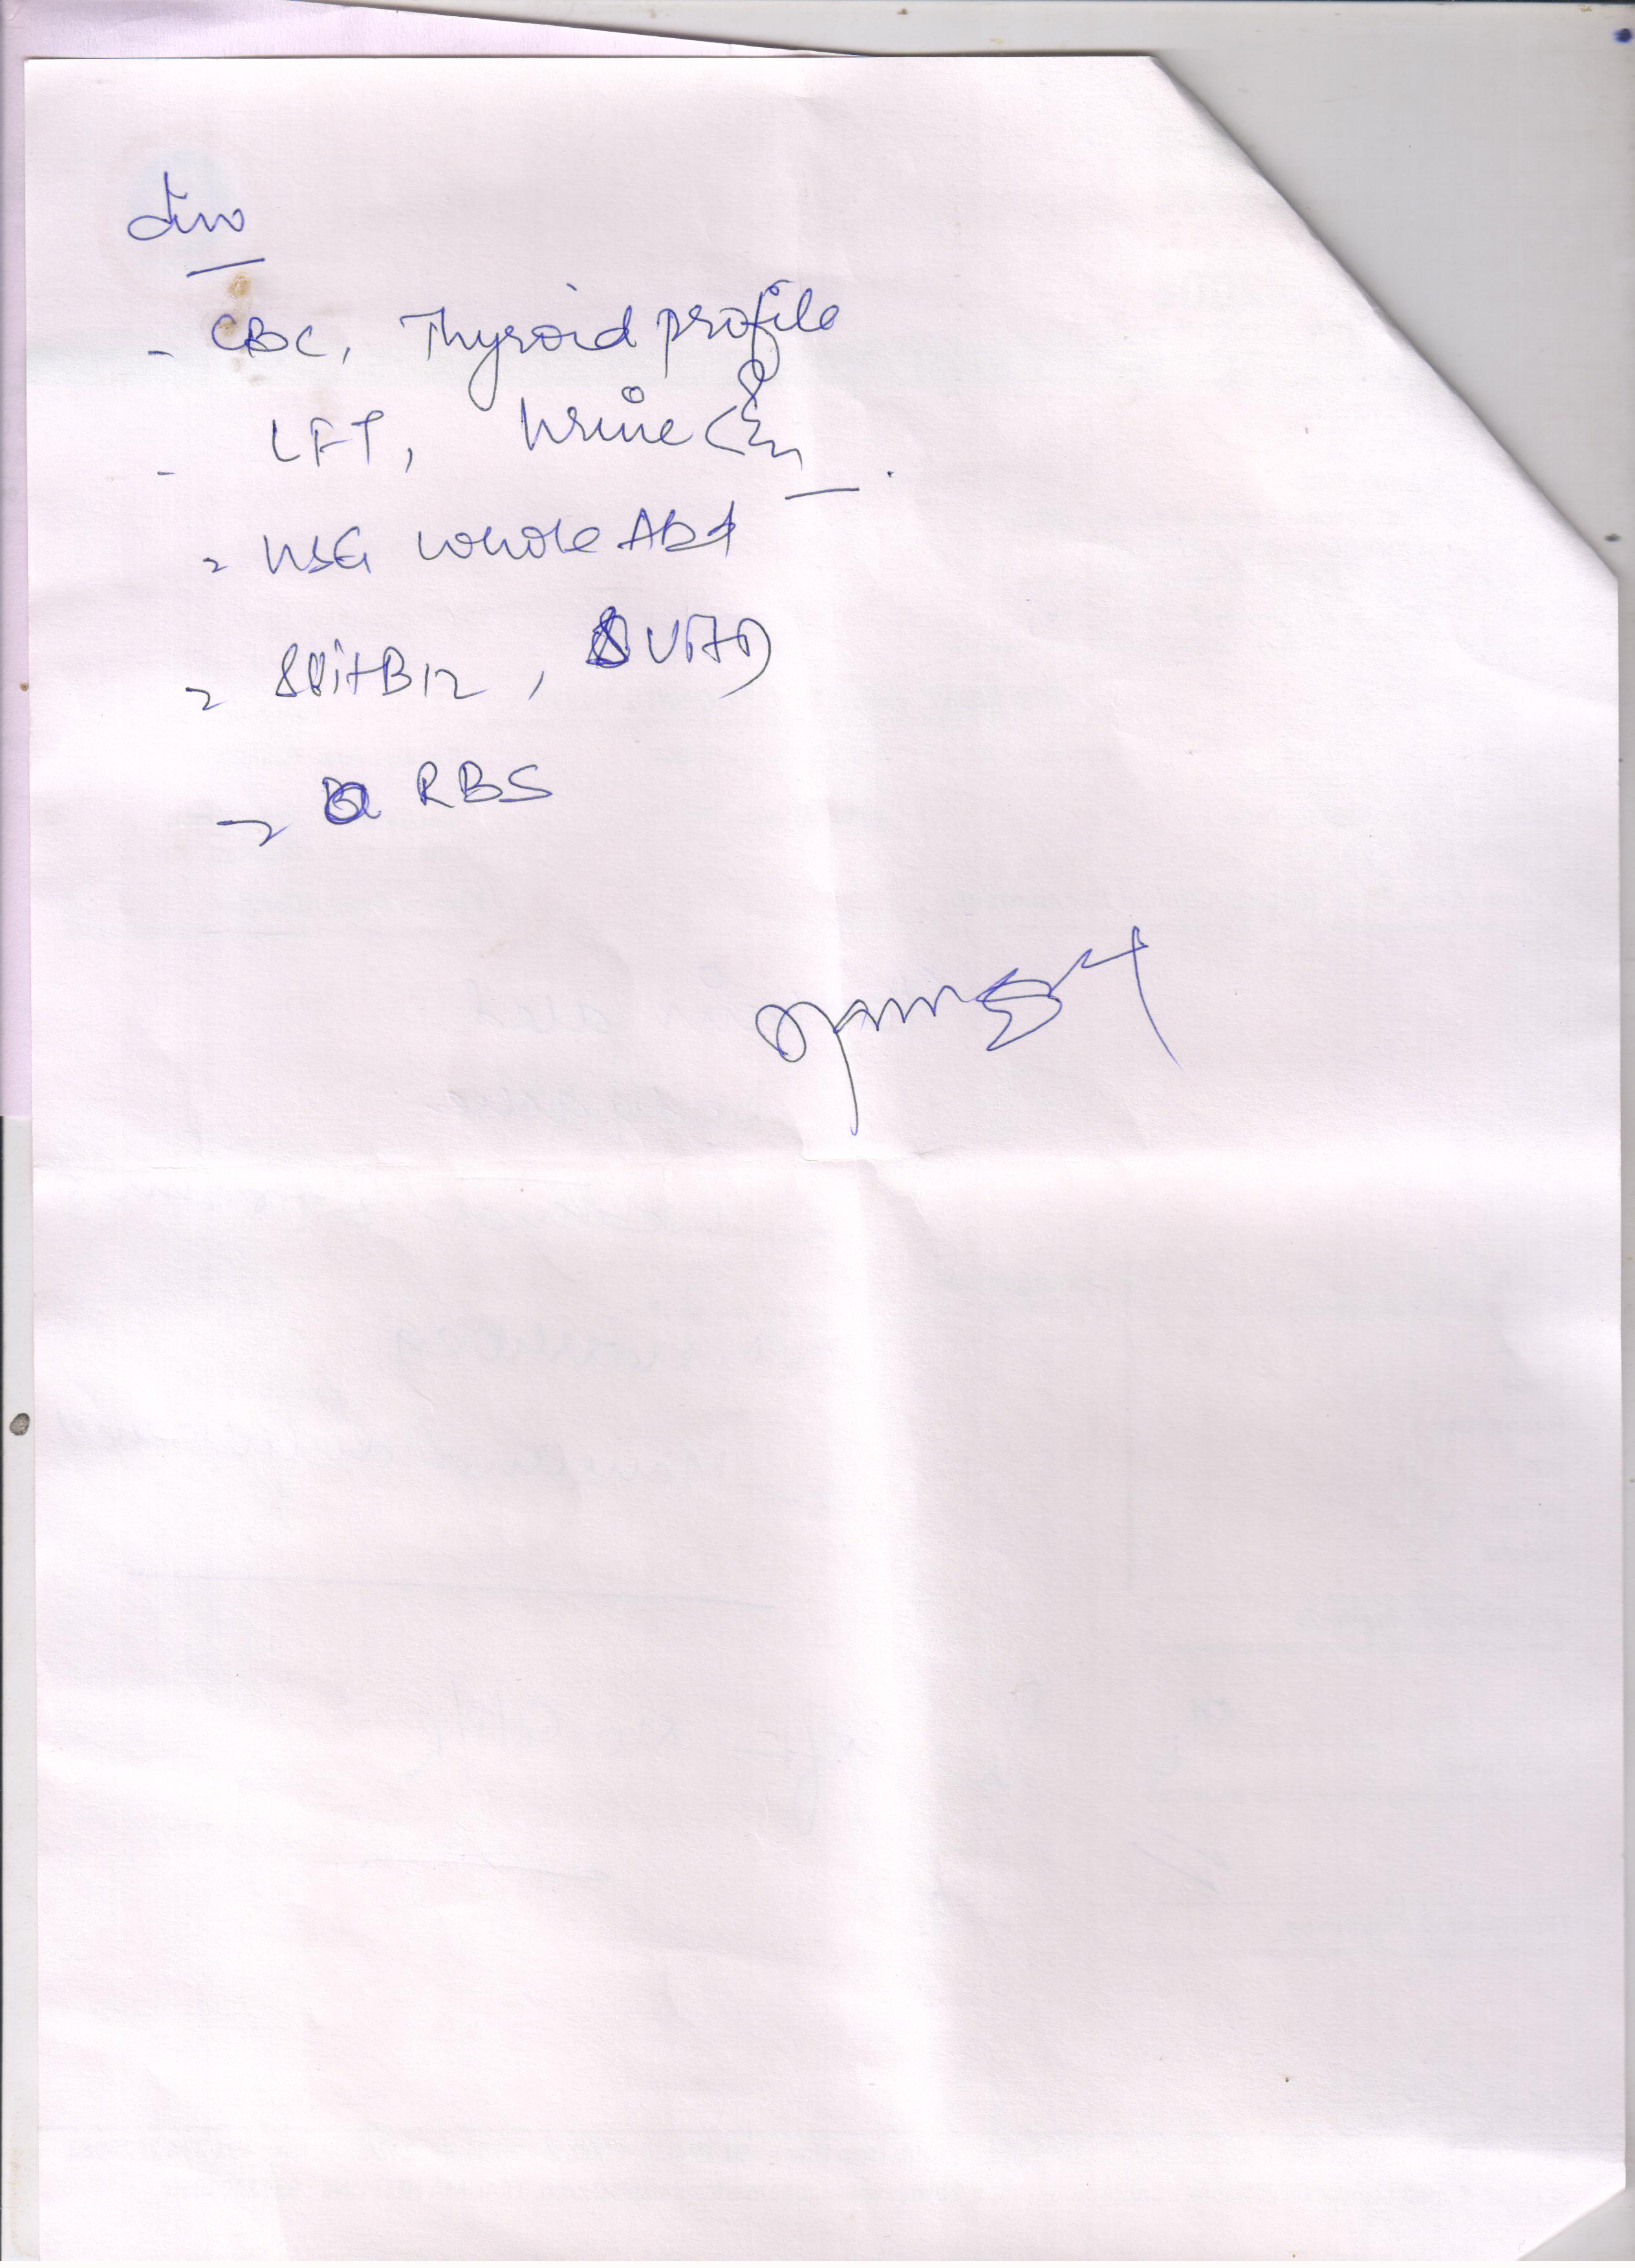 Inv
- CBC, Thyroid profile
- LFT, Urine
- USG whole Abd
- S Vit B12, S Vit D
- RBS